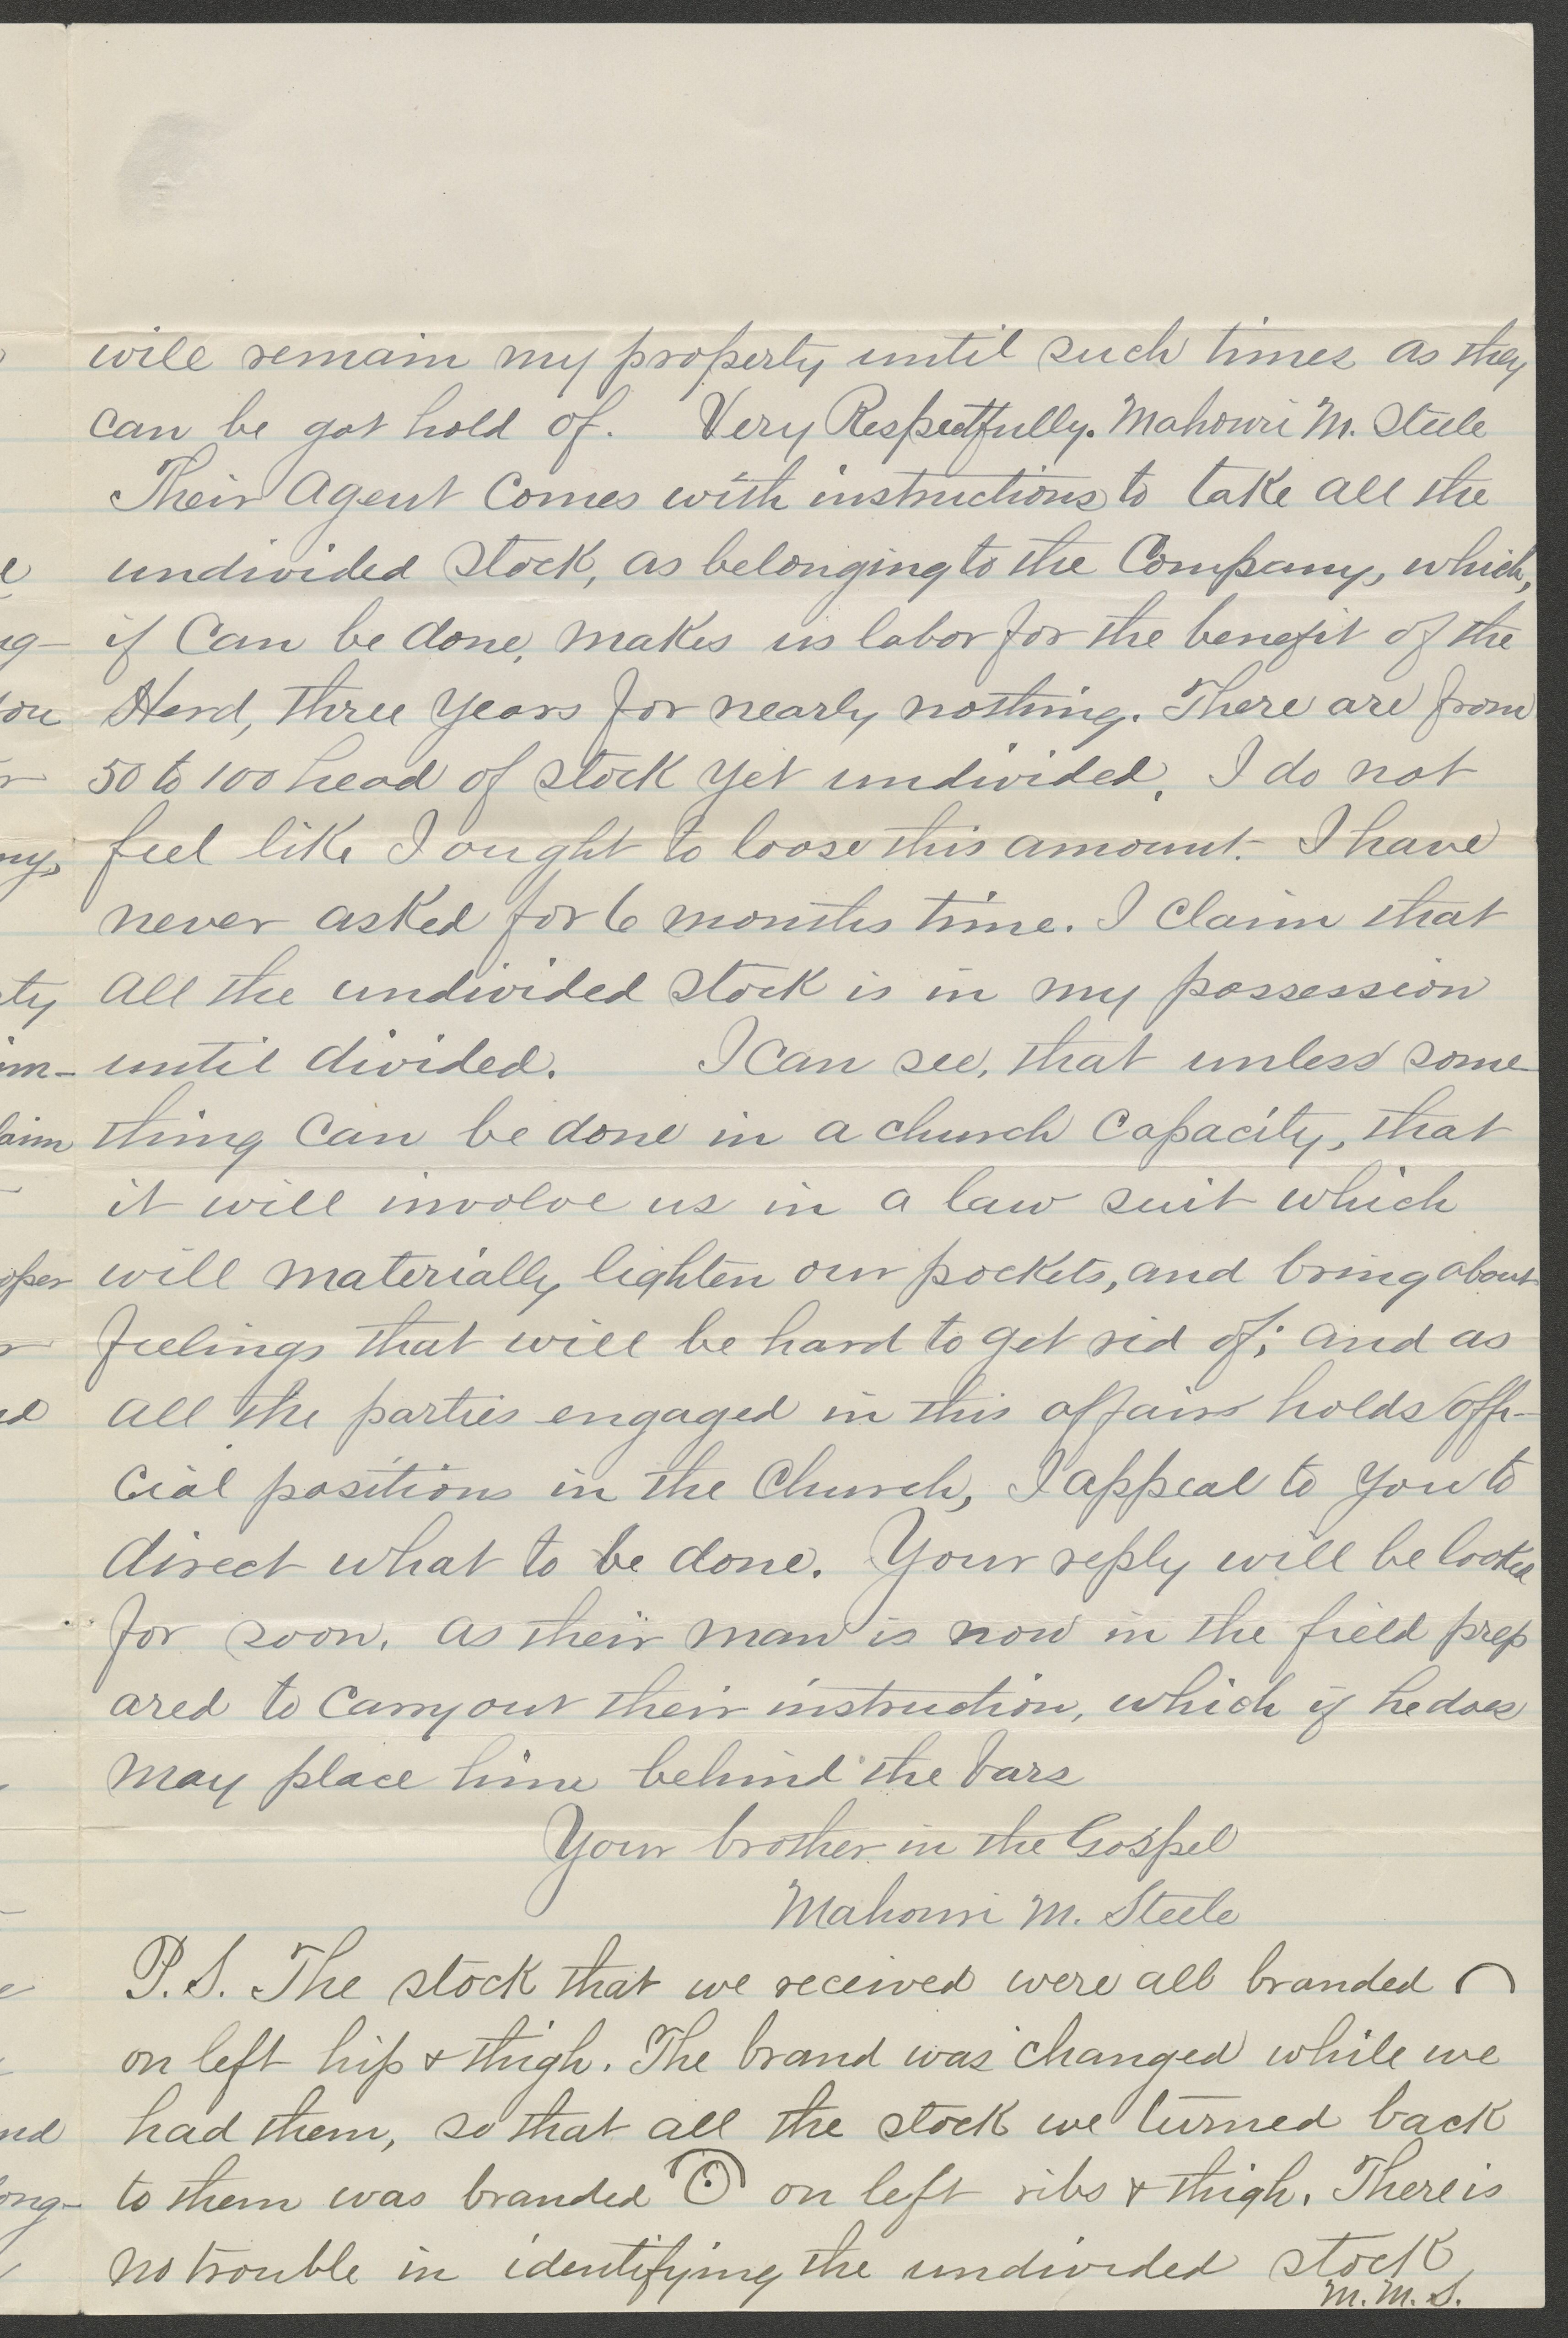 will remain my property until such times as they
can be got hold of. Very Respectfully. Mahonri M. Steele
Their Agent Comes with instructions to take all the
undivided Stock, as belonging to the Company, which,
if Can be done, makes us labor for the benefit of the
Herd, three years for nearly nothing. There are from
50 to 100 head of stock yet undivided. I do not
feel like I ought to loose this amount. I have
never asked for 6 months time. I claim that
all the undivided stock is in my possession
until divided. I can see, that unless some-
thing can be done in a church capacity, that
it will involve us in a law suit which
will materially lighten our pockets, and bring about
feelings that will be hard to get rid of; and as
all the parties engaged in this affair holds offi-
cial positions in the Church, I appeal to you to
direct what to be done. Your reply will be looked
for soon. as their man is now in the field prep
ared to carry out their instruction, which if he does
may place him behind the bars
Your brother in the Gospel
Mahonri M. Steele
P.S. The stock that we received were all branded
on left hip & thigh. The brand was changed while we
had them, so that all the stock we turned back
to them was branded on left ribs & thigh. There is
no trouble in identifying the undivided stock
M. M. S.